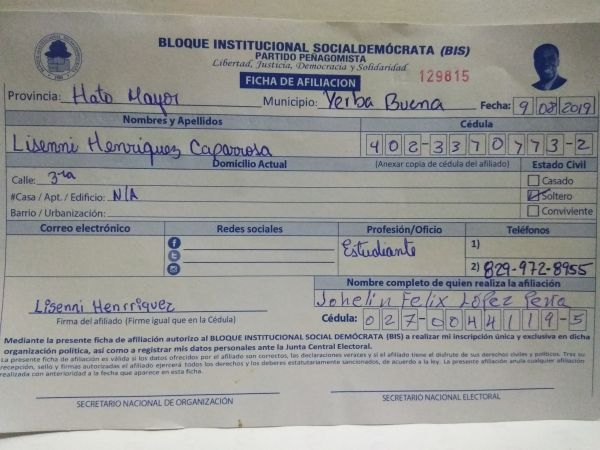 BLOQUE INSTITUCIONAL SOCIALDEMÓCRATA (BIS)
PARTIDO PEÑAGOMISTA
Libertad, Justicia, Democracia y Solidaridad
FICHA DE AFILIACION
129815
Provincia: Hato Mayor Municipio: Yerba Buena Fecha: 9/08/2019
Nombres y Apellidos Cédula
Lisenni Henriquez Caparrosa 402-3370773-2
Domicilio Actual (Anexar copia de cédula del afiliado) Estado Civil
Calle: 3ra Casado
#Casa / Apt. / Edificio: N/A Soltero
Barrio / Urbanización: Conviviente
Correo electrónico Redes sociales Profesión/Oficio Teléfonos
Estudiante 1)
2) 829-972-8955
Nombre completo de quien realiza la afiliación
Lisenni Henrriquez Johelin Felix López Peña
Firma del afiliado (Firme igual que en la Cédula) Cédula: 027-0044119-5
Mediante la presente ficha de afiliación autorizo al BLOQUE INSTITUCIONAL SOCIAL DEMÓCRATA (BIS) a realizar mi inscripción única y exclusiva en dicha
organización política, así como a registrar mis datos personales ante la Junta Central Electoral.
La presente ficha de afiliación es válida si los datos ofrecidos por el afiliado son correctos, las declaraciones veraces y si el afiliado tiene el disfrute de sus derechos civiles y políticos. Tras su
recepción, sello y firmas autorizadas el afiliado ejercerá todos los derechos y los deberes estatutariamente sancionados, de acuerdo a la ley. La presente afiliación anula cualquier afiliación
realizada con anterioridad a la fecha que aparece en esta ficha.
SECRETARIO NACIONAL DE ORGANIZACIÓN SECRETARIO NACIONAL ELECTORAL